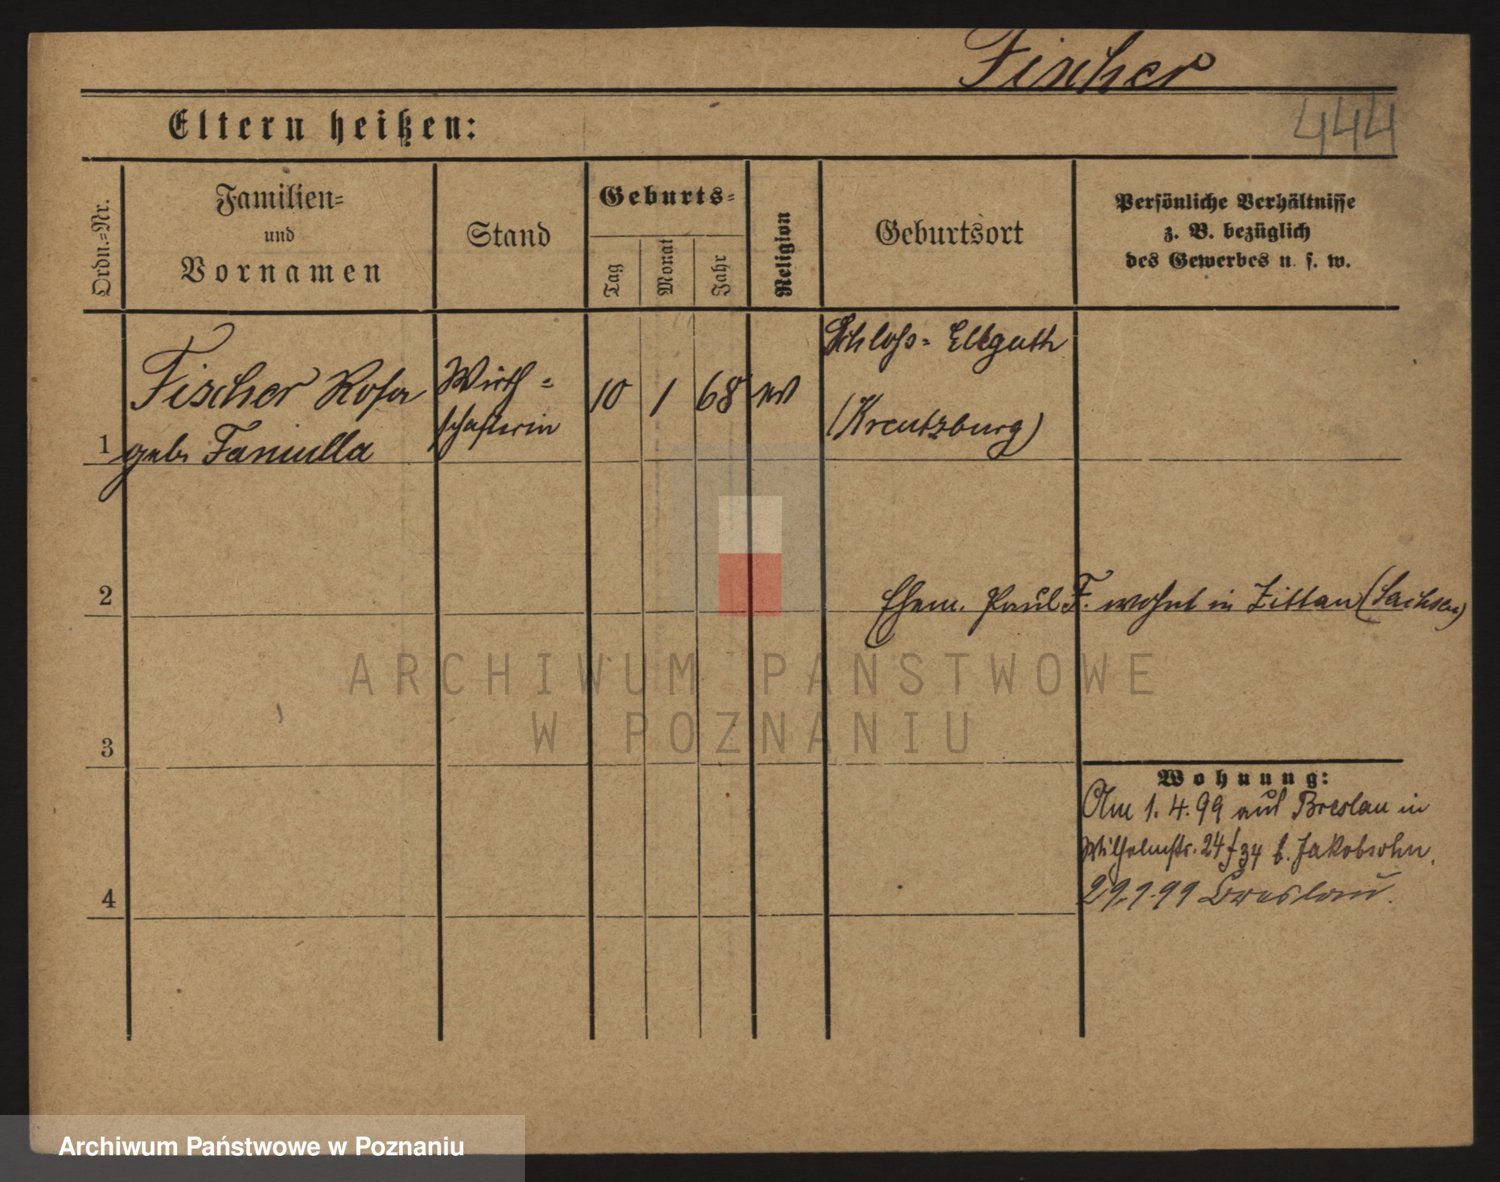 Fischer
444
Eltern heißen:
Ordn.-Nr.
Familien-
und
Vornamen
Stand
Geburts-
Tag
Monat
Jahr
Religion
Geburtsort
Persönliche Verhältnisse
z. B. bezüglich
des Gewerbes u. s. w.
1
Fischer Rosa
geb. Faniulla
Wirth-
schafterin
10
1
68
Schloss-Ellguth
(Kreutzburg)
2
Ehem. Paul F. wohnt in Zittau (Sachsen)
ARCHIWUM PAŃSTWOWE
W POZNANIU
3
Wohnung:
Am 1.4.99 aus Breslau in
Wilhelmstr. 24 b. Jakobsohn.
4
Breslau.
Archiwum Państwowe w Poznaniu